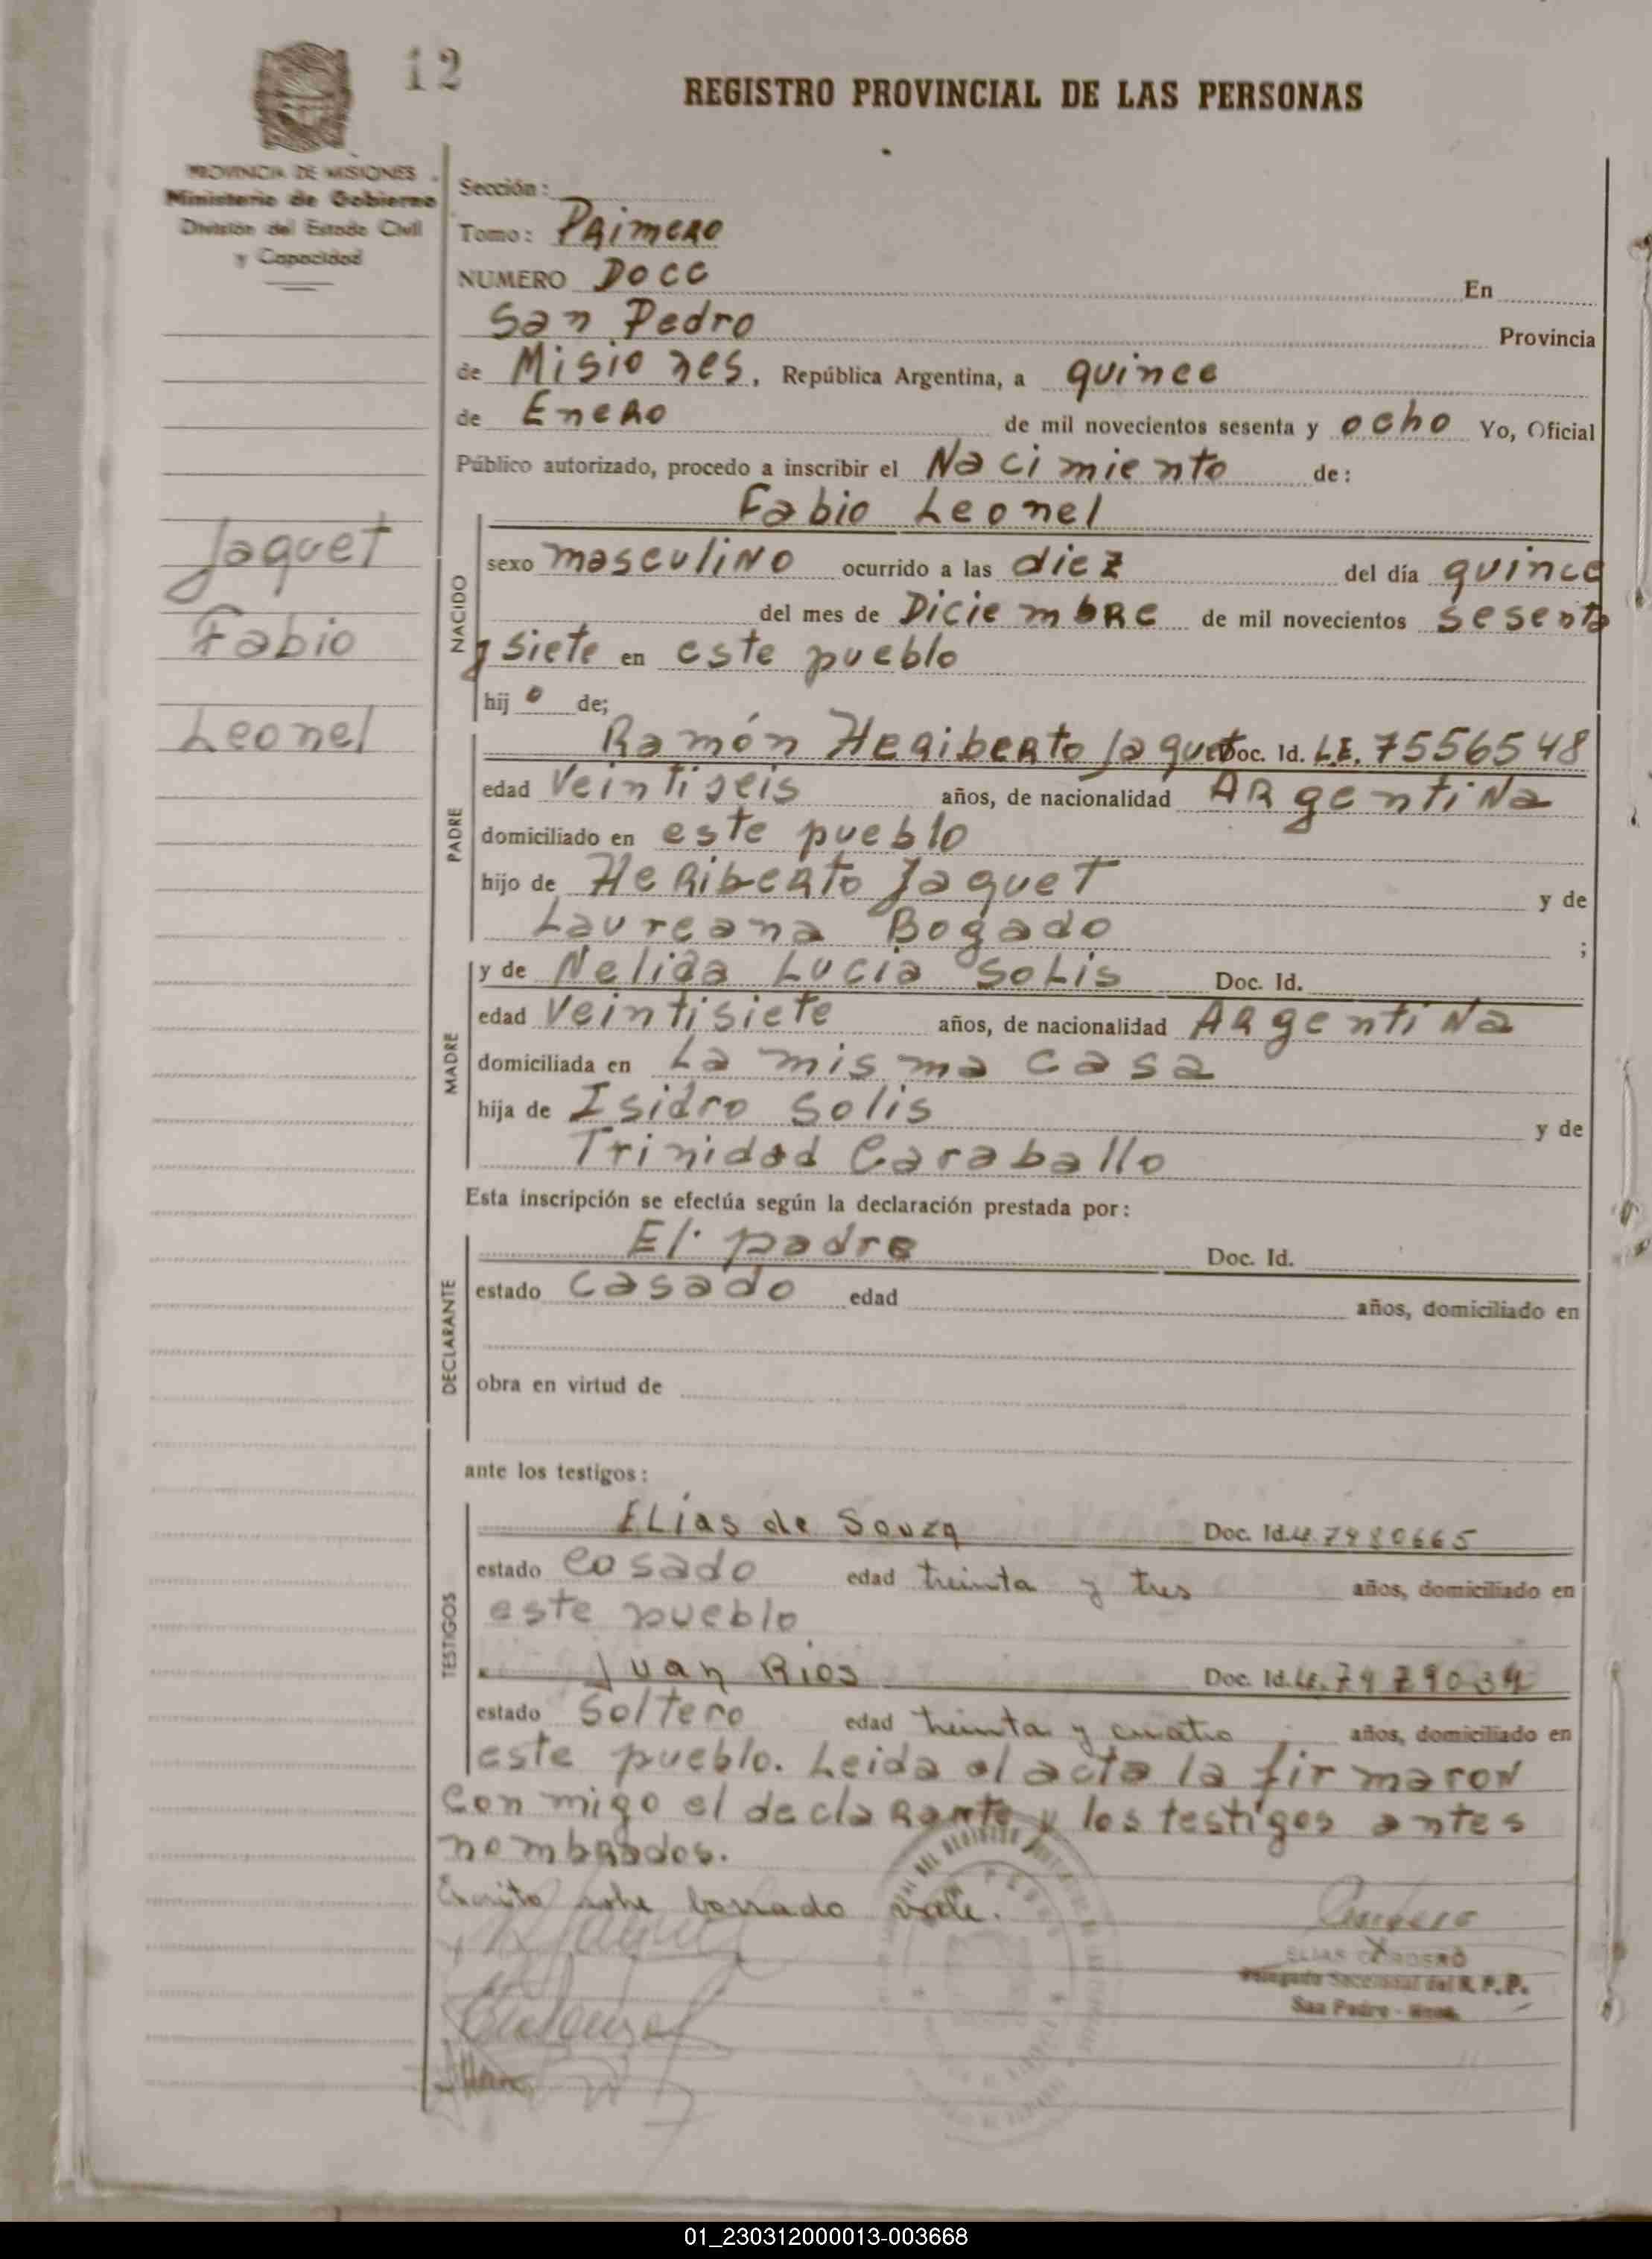 12
REGISTRO PROVINCIAL DE LAS PERSONAS
PROVINCIA DE MISIONES
Ministerio de Gobierno
División del Estado Civil
y Capacidad
Sección:
Tomo: Primero
NUMERO Doce En
San Pedro Provincia
de Misiones, República Argentina, a quince
de Enero de mil novecientos sesenta y ocho Yo, Oficial
Público autorizado, procedo a inscribir el Nacimiento de:
Jaquet
Fabio
Leonel
NACIDO
Fabio Leonel
sexo masculino ocurrido a las diez del día quince
del mes de Diciembre de mil novecientos sesenta
y siete en este pueblo
hijo de;
PADRE
Ramón Heriberto Jaquet Doc. Id. L.E. 7556548
edad Veintiseis años, de nacionalidad Argentina
domiciliado en este pueblo
hijo de Heriberto Jaquet y de
Laureana Bogado ;
MADRE
y de Nelida Lucia Solis Doc. Id.
edad Veintisiete años, de nacionalidad Argentina
domiciliada en La misma casa
hija de Isidro Solis y de
Trinidad Caraballo
Esta inscripción se efectúa según la declaración prestada por:
DECLARANTE
El padre Doc. Id.
estado Casado edad años, domiciliado en
obra en virtud de
ante los testigos:
TESTIGOS
Elias de Souza Doc. Id. LE. 7480665
estado Casado edad treinta y tres años, domiciliado en
este pueblo
Juan Rios Doc. Id. LE. 7479034
estado Soltero edad treinta y cuatro años, domiciliado en
este pueblo. Leida el acta la firmaron
conmigo el declarante y los testigos antes
nombrados.
Escrito sobre borrado vale.
ELIAS CORDERO
Delegado Seccional del R. P. P.
San Pedro - Mnes.
01_230312000013-003668